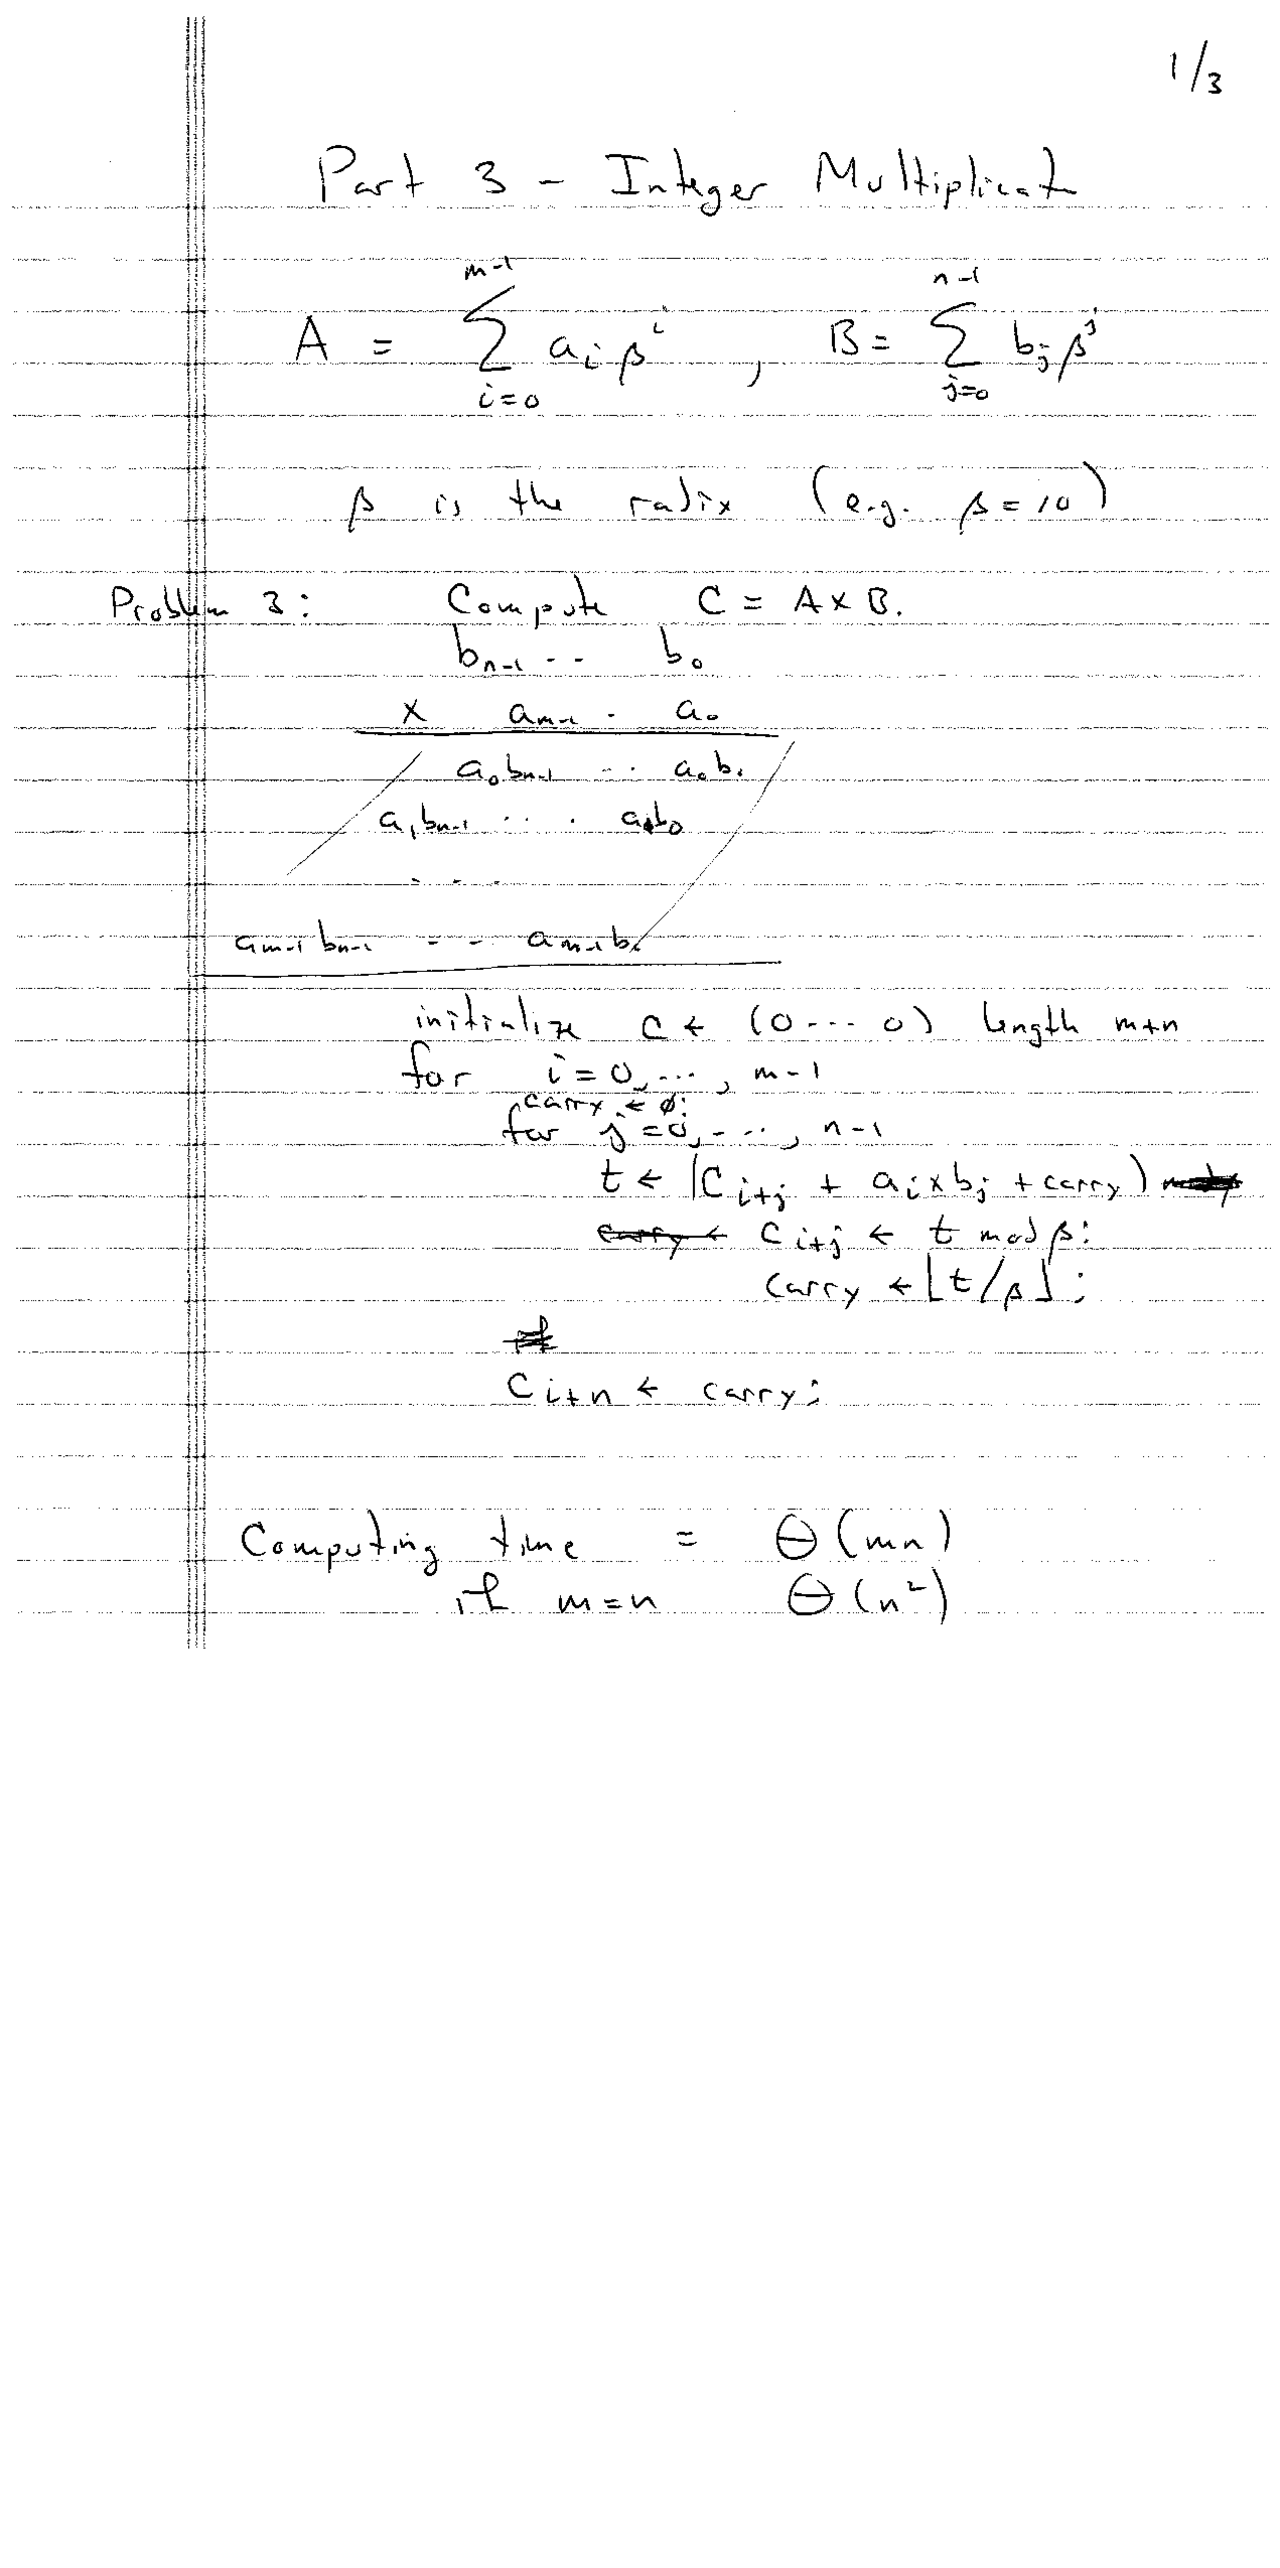 1/3
Part 3 - Integer Multiplicat
A = ∑_{i=0}^{m-1} a_i β^i , B = ∑_{j=0}^{n-1} b_j β^j
β is the radix (e.g. β = 10)
Problem 3: Compute C = A × B.
b_{n-1} -- b_0
× a_{m-1} - a_0
a_0b_{n-1} -- a_0b_0
a_1b_{n-1} ... a_1b_0
- - -
a_{m-1}b_{n-1} - - - a_{m-1}b_0
initialize C ← (0 --- 0) length m+n
for i = 0, ..., m-1
carry ← 0;
for j = 0, ..., n-1
t ← (C_{i+j} + a_i × b_j + carry)
C_{i+j} ← t mod β;
carry ← ⌊t/β⌋;
C_{i+n} ← carry;
Computing time = Θ(mn)
if m=n Θ(n²)